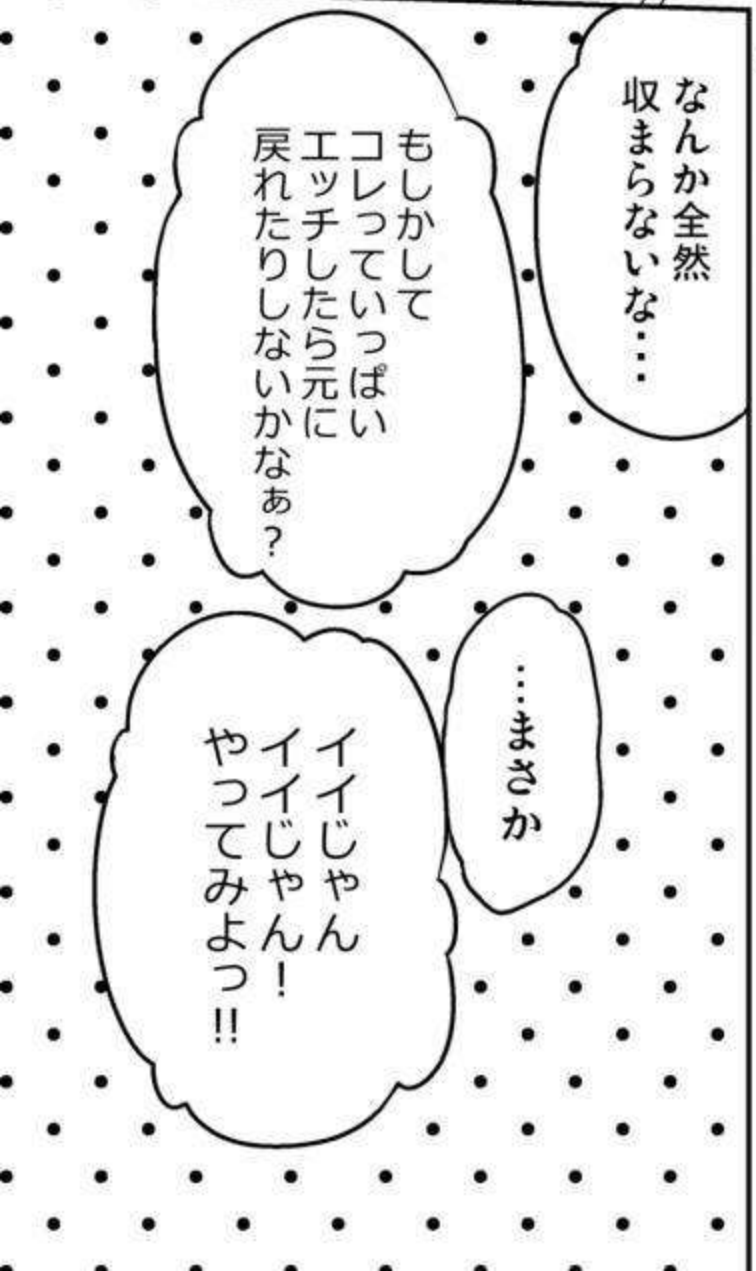 なんか全然
収まらないな…‥
もしかして
コレっていっぱい
エッチしたら元に
戻れたりしないかなぁ?
…まさか
イイじゃん
イイじゃん!
やってみよっ!!